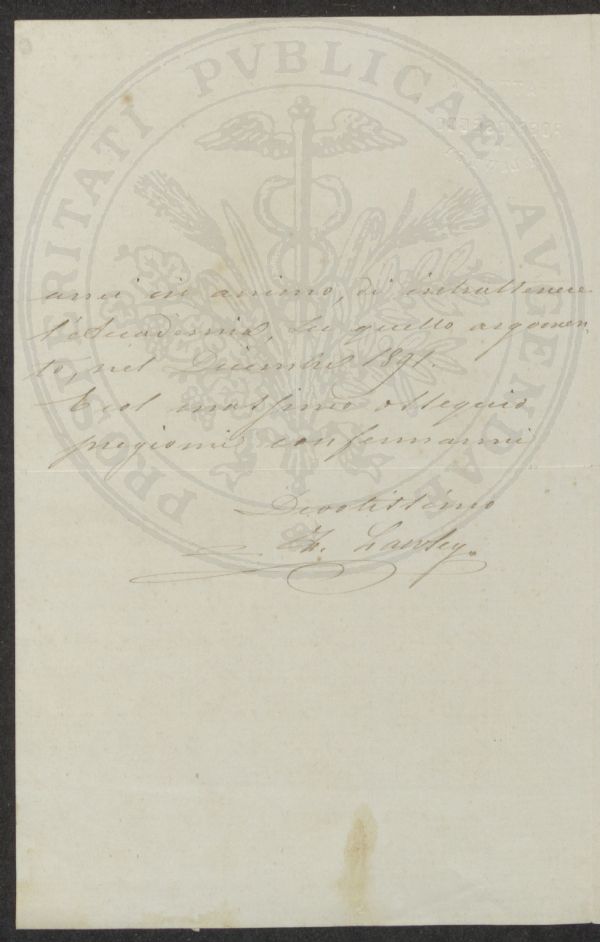 PROSPERITATI PVBLICAE AVGENDAE
in animo, di intrattenere
l'Accademia, su quello argomen
to, nel Dicembre 1891.
E col massimo ossequio
pregiomi confermarmi
Devotissimo
Lawley.